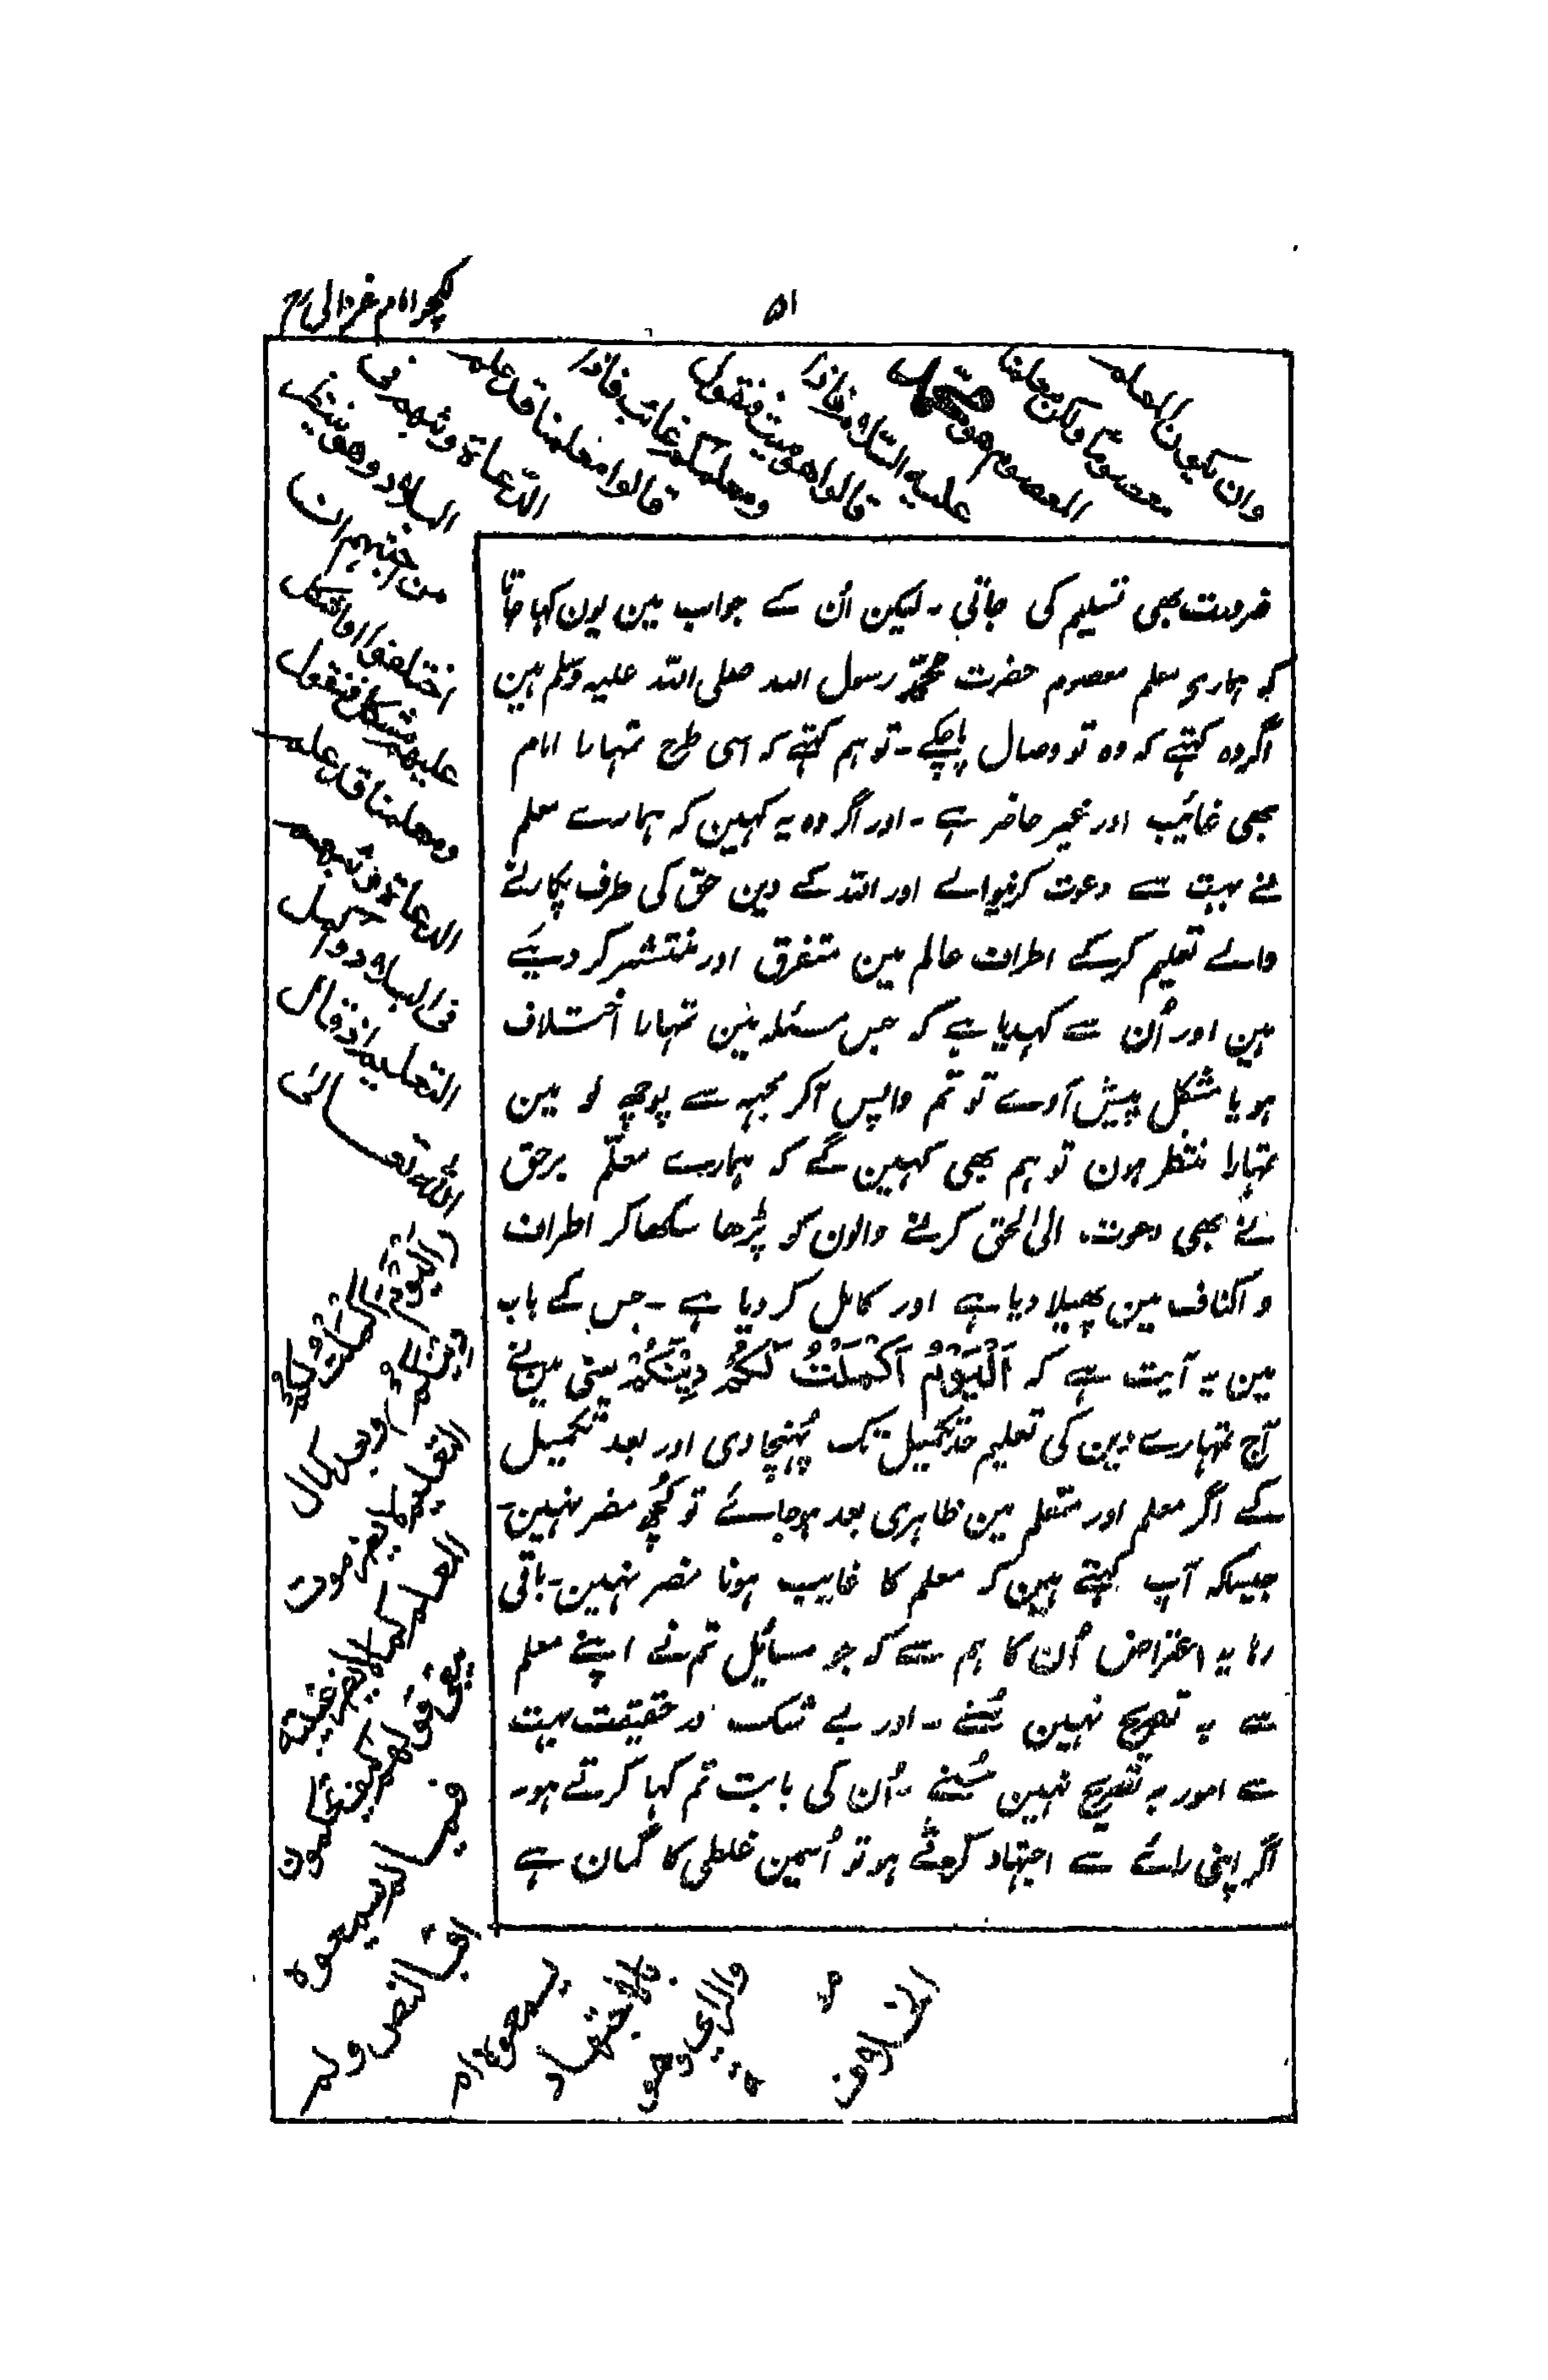 ۵۱
لکچر امام غزالی رح
وان یکون المعلم
معصوما ولکن معلمنا
المعصوم هو محمد
علیه السلام فاذا
قالوا هو میت فنقول
ومعلمکم غائب فاذا
قالوا معلمنا قد علم
الدعاة وبثهم فی
البلاد وهو ینتظر
مراجعتهم ان
اختلفوا او اشکل
علیهم مشکل فنقول
ومعلمنا قد علم
الدعاة وبثهم
فی البلاد و اکمل
التعلیم اذ قال
الله تعالی
(الیوم اکملت لکم
دینکم) وبعد کمال
التعلیم لا یضر موت
المعلم کما لا یضر غیبته
یبقی قولهم کیف تحکمون
فیما لم تسمعوه
ابالنص ولم
تسمعوه ام
بالاجتهاد
والرای وهو
ضرورت بھی تسلیم کی جاتی ۔ لیکن اُن کے جواب مین یون کہا جاتا
کہ ہماری معلم معصوم حضرت محمّد رسول اللہ صلی اللہ علیہ وسلم ہین
اگر وہ کہتے کہ وہ تو وصال پاچکے ۔ تو ہم کہتے کہ اسی طرح تمہارا امام
بھی غائیب اور غیر حاضر ہے ۔ اور اگر وہ یہ کہین کہ ہمارے معلم
نے بہت سے دعوت کرنیوالے اور اللہ کے دین حق کی طرف پکارنے
والے تعلیم کرکے اطراف عالم مین متفرق اور منتشر کر دیئے
ہین اور اُن سے کہدیا ہے کہ جس مسئلہ مین تمہارا اختلاف
ہو یا مشکل پیش آوے تو تم واپس آکر مجہہ سے پوچھ لو مین
تمہارا منتظر ہون تو ہم بھی کہین گے کہ ہمارے معلّم برحق
نے بھی دعوت الی الحق کرنے والون کو پڑھا سکھا کر اطراف
و اکناف مین پھیلا دیا ہے اور کامل کر دیا ہے ۔ جس کے باب
مین یہ آیت ہے کہ اَلْیَوْمَ اَکْمَلْتُ لَکُمْ دِیْنَکُمْ یعنی مین نے
آج تمہارے دین کی تعلیم حد تکمیل تک پُہنچا دی اور بعد تکمیل
کے اگر معلم اور متعلم مین ظاہری بعد ہوجائے تو کُچھ مضر نہین ۔
جیسا کہ آپ کہتے ہین کہ معلم کا غایب ہونا مضر نہین ۔ باقی
رہا یہ اعتراض اُن کا ہم سے کہ جو مسائیل تم نے اپنے معلم
سے بہ تصریح نہین سُنے ۔ اور بے شک در حقیقت بہت
سے امور بہ تصریح نہین سُنے ۔ اُن کی بابت تم کہا کرتے ہو ۔
اگر اپنی رائے سے اجتہاد کرتے ہو تو اُسمین غلطی کا گمان ہے